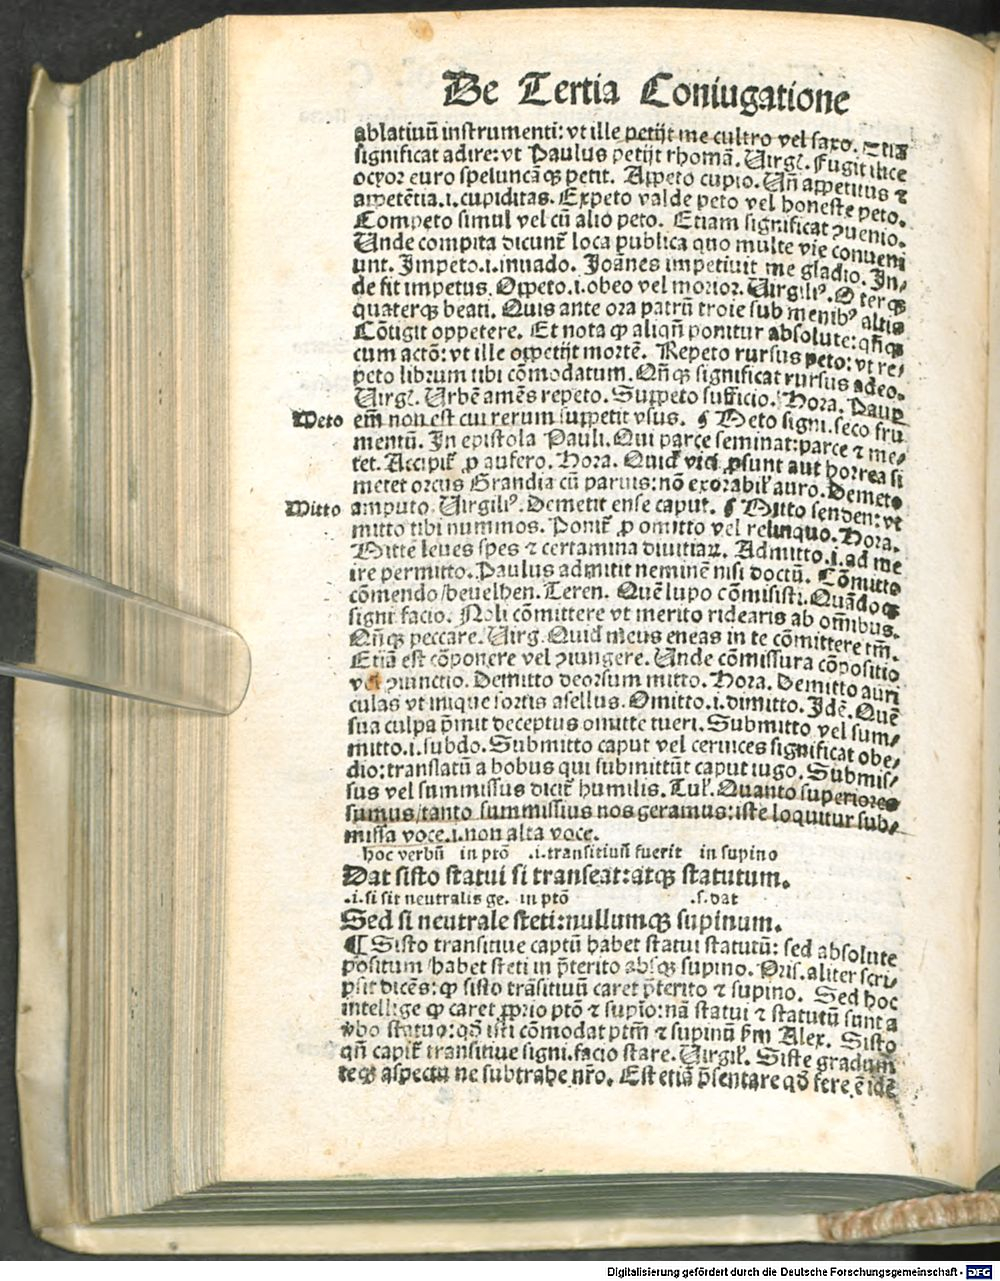 De Tertia Coniugatione
ablatiuū instrumenti: vt ille petijt me cultro vel saxo. Etiā
significat adire: vt Paulus petijt rhomā. Uirgꝉ. Fugit ilice
ocyor euro speluncāqꝫ petit. Appeto cupio. Uñ appetitus ⁊
appetētia.i.cupiditas. Expeto valde peto vel honeste peto.
Competo simul vel cū alio peto. Etiam significat ꝯuenio.
Unde compita dicunt̄ loca publica quo multe vie conueni
unt. Impeto.i.inuado. Joānes impetiuit me gladio. In⸗
de fit impetus. Oppeto.i.obeo vel morior. Uirgiliꝰ. O terqꝫ
quaterqꝫ beati. Quis ante ora patrū troie sub menibꝰ altis
Cōtigit oppetere. Et nota ꝙ aliqñ ponitur absolute: qñqꝫ
cum actō: vt ille oppetijt mortē. Repeto rursus peto: vt re⸗
peto librum tibi cōmodatum. Qñqꝫ significat rursus adeo.
Uirgꝉ. Urbē amēs repeto. Suppeto sufficio. Hora. Paup
Meto em̄ non est cui rerum suppetit vsus. ¶ Meto signi. seco fru
mentū. In epistola Pauli. Qui parce seminat: parce ⁊ me⸗
tet. Accipit̄ ꝓ aufero. Hora. Quid vici ꝓsunt aut horrea si
metet orcus Grandia cū paruis: nō exorabiꝉ auro. Demeto
Mitto amputo. Uirgiliꝰ. Demetit ense caput. ¶ Mitto senden: vt
mitto tibi nummos. Ponit̄ ꝓ omitto vel relinquo. Hora.
Mitte leues spes ⁊ certamina diuitiaꝝ. Admitto.i.ad me
ire permitto. Paulus admitit neminē nisi doctū. Cōmitto
cōmendo/beuelhen. Teren. Quē lupo cōmisisti. Quādoqꝫ
signi facio. Noli cōmittere vt merito ridearis ab oībus.
Qñqꝫ peccare. Uirg. Quid meus eneas in te cōmittere tm̄.
Etiā est cōponere vel ꝯiungere. Unde cōmissura cōpositio
vel ꝯiunctio. Demitto deorsum mitto. Hora. Demitto auri
culas vt inique sortis asellus. Omitto.i.dimitto. Idē. Quē
sua culpa p̄mit deceptus omitte tueri. Submitto vel sum⸗
mitto.i.subdo. Submitto caput vel ceruices significat obe⸗
dio: translatū a bobus qui submittūt caput iugo. Submis⸗
sus vel summissus dicit̄ humilis. Tuꝉ. Quanto superiores
sumus/tanto summissius nos geramus: iste loquitur sub⸗
missa voce.i.non alta voce.
hoc verbū in ptō .i.transitiuū fuerit in supino
Dat sisto statui si transeat: atqꝫ statutum.
.i.si sit neutralis ge. in ptō .s.dat
Sed si neutrale steti: nullumqꝫ supinum.
¶ Sisto transitiue captū habet statui statutū: sed absolute
positum/habet steti in p̄terito absqꝫ supino. Pris. aliter scri⸗
psit dicēs: ꝙ sisto trāsitiuū caret p̄terito ⁊ supino. Sed hoc
intellige ꝙ caret ꝓprio ptō ⁊ supīo: nā statui ⁊ statutū sunt a
v̄bo statuo: qđ isti cōmodat ptm̄ ⁊ supinū ẜm Alex. Sisto
qñ capit̄ transitiue signi. facio stare. Uirgiꝉ. Siste gradum
teqꝫ aspectu ne subtrahe nr̄o. Est etiā p̄sentare qđ fere ē idē
Digitalisierung gefördert durch die Deutsche Forschungsgemeinschaft - DFG